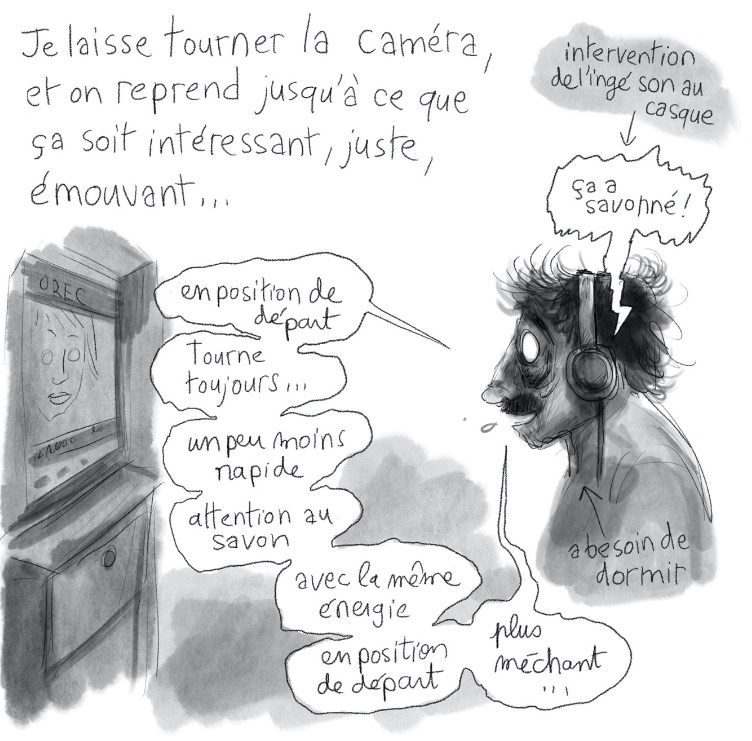 Je laisse tourner la caméra,
et on reprend jusqu'à ce que
ça soit intéressant, juste,
émouvant...
intervention
de l'ingé son au
casque
ça a
savonné !
OREC
en position de
départ
Tourne
toujours...
un peu moins
rapide
attention au
savon
avec la même
énergie
en position
de départ
plus
méchant
...
a besoin de
dormir